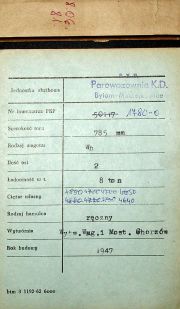 18
308
Jednostka służbowa Parowozownia K.D.
Bytom-Maciejkowice
Nr inwentarza PKP 1780-0
Szerokość toru 785 mm
Rodzaj wagonu Wb
Ilość osi 2
Ładowność w t. 8 ton
Ciężar własny 4640
Rodzaj hamulca ręczny
Wytwórnia Wytw.Wag.i Most. Chorzów
Rok budowy 1947